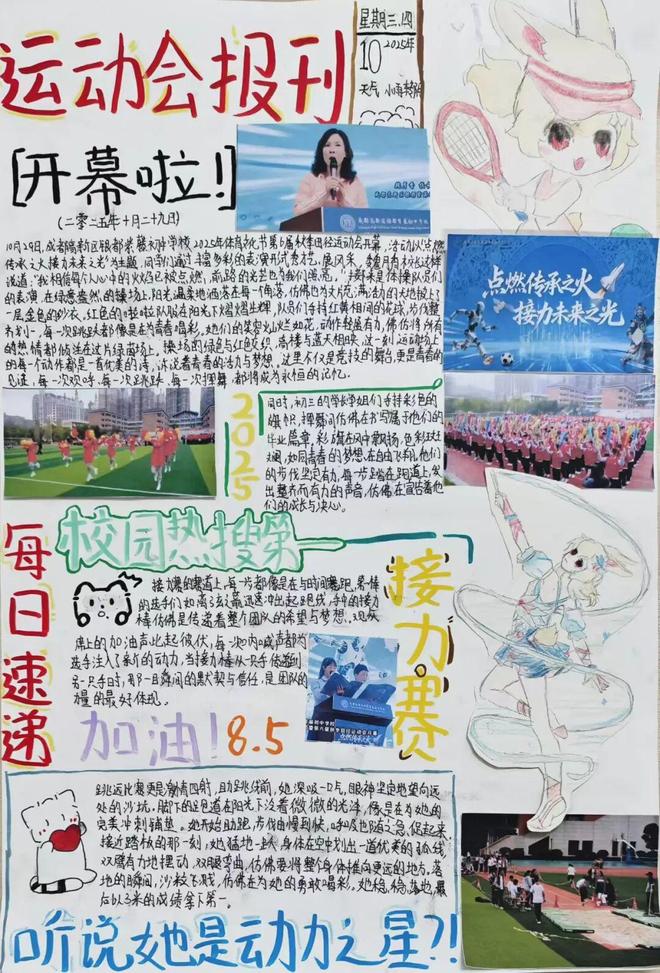 运动会报刊
星期三.四
10
2025年
天气:
[开幕啦!]
(二零二五年十月二十九日)
10月29日,成都高新区银都紫藤初中学校2025年体育秋节第七届秋季田径运动会开幕,活动以“点燃
传承之火接力未来之光”为主题,同学们通过丰富多彩的表演形式
说道:“我相信每个人心中的火焰已被点燃,前路的光芒也为我们照亮。”接下来是体操队员们
的表演,在绿意盎然的操场上,阳光温柔地洒落在每一角落,仿佛也为这片充满活力的大地披上了
一层金色的纱衣,红色的啦啦队服在阳光下熠熠生辉,队员们手持红黄相间的花球,步伐整
齐划一,每一次跳跃都像是在为青春喝彩,她们的笑容灿烂如花,动作轻盈有力,仿佛将所有
的热情都倾注在这片绿茵场上,操场的绿色与红色交织,高楼与蓝天相映,这一刻,运动场上
的每一个动作都是一首优美的诗,诉说着青春的活力与梦想。这里不仅是竞技的舞台,更是青春的
见证,每一次欢呼,每一次跳跃,每一次挥舞,都将成为永恒的记忆。
点燃传承之火
接力未来之光
2025
同时,初三的学长学姐们手持彩色的
旗帜,挥舞间仿佛在书写属于他们的
毕业篇章,彩旗在风中飘扬,色彩斑
斓,如同青春的梦想,在自由飞翔,他们
的步伐坚定有力,每一步踏在跑道上,发
出整齐而有力的声音,仿佛在宣告着他
们的成长与决心。
每日速递
校园热搜第一
接力赛
接力赛的赛道上,每一步都像是在与时间赛跑,第一棒
的选手们如离弦之箭迅速冲出起跑线,手中的接力
棒仿佛是传递着整个团队的希望与梦想,观众
席上的加油声此起彼伏,每一次呐喊声都为
选手注入了新的动力,当接力棒从一只手传递到
另一只手时,那一瞬间的默契与信任,是团队的
力量的最好体现。
加油!8.5
跳远比赛更是激情四射,助跳线前,她深吸一口气,眼神坚定地望向远
处的沙坑,脚下的跑道在阳光下泛着微微的光泽,像是在为她的
完美冲刺铺垫。她开始助跑,步伐由慢到快,呼吸也随之急促起来,
接近踏板的那一刻,她猛地一跃,身体在空中划出一道优美的弧线
双臂有力地摆动,双腿弯曲,仿佛要将整个身体推向更远的地方。落
地的瞬间,沙粒飞溅,仿佛在为她的勇敢喝彩,她稳稳落地,最
后以3米的成绩拿下第一。
听说她是动力之星?!